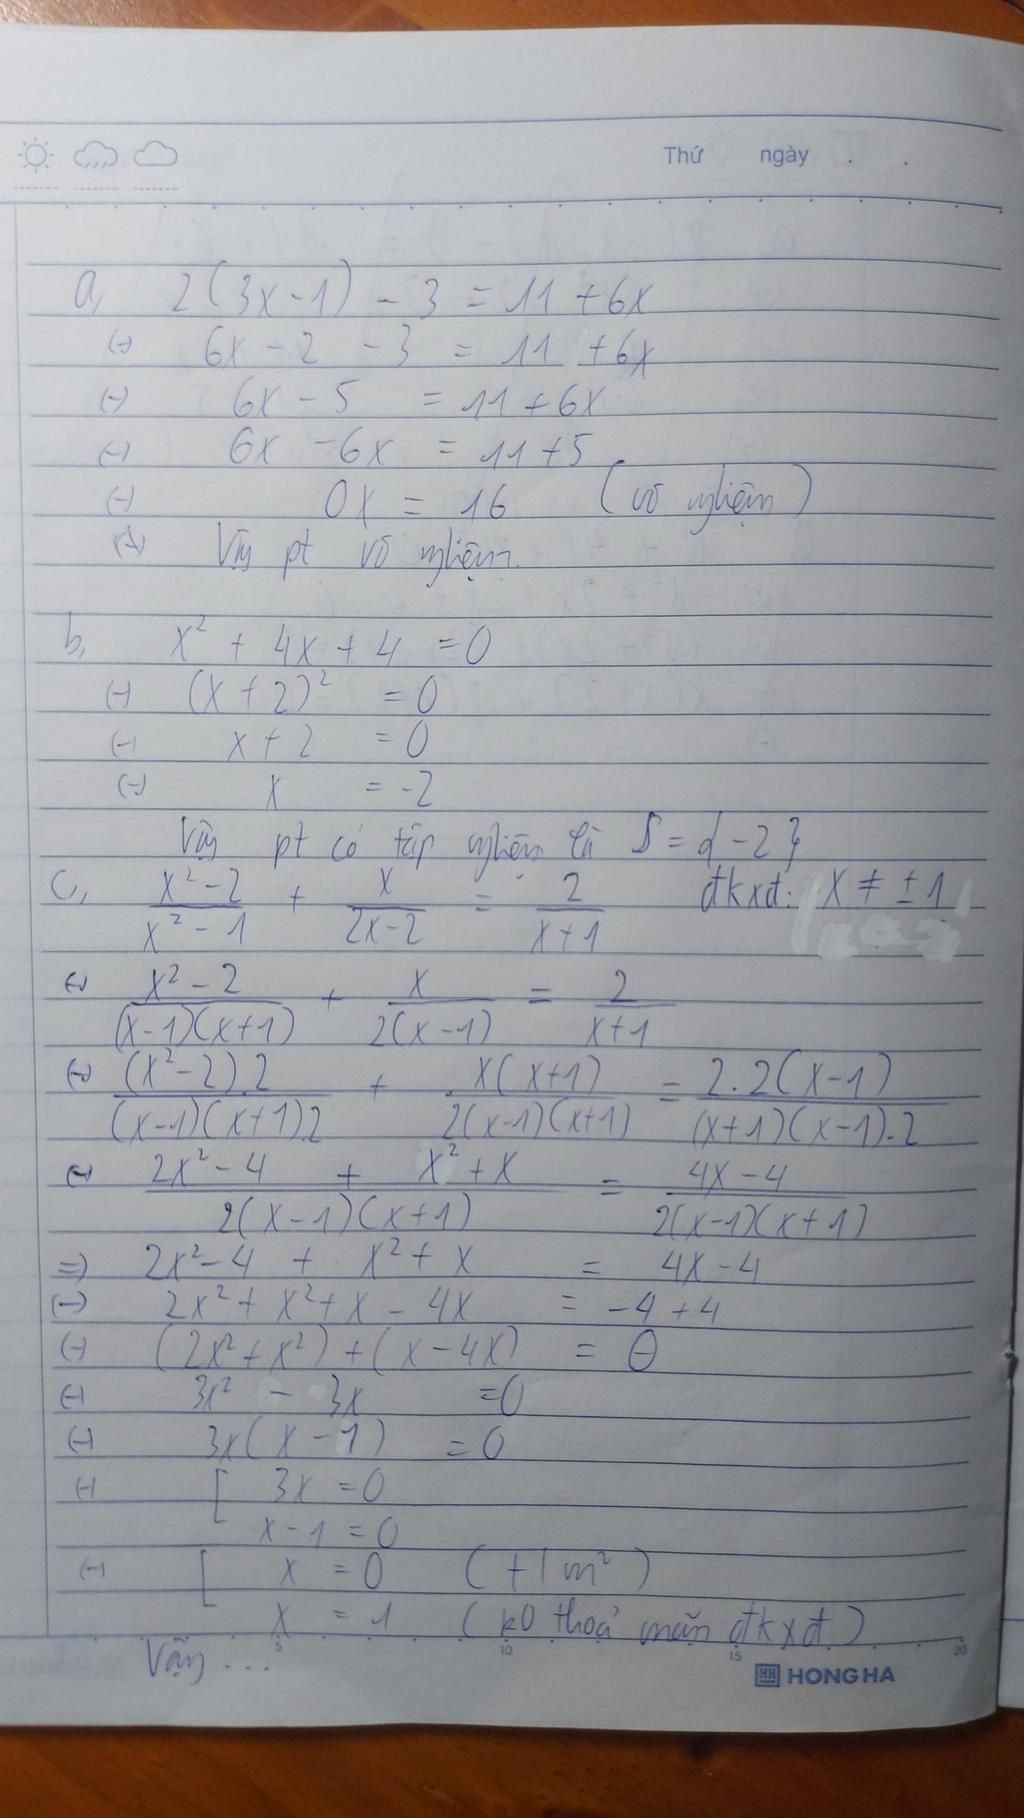 Thứ ngày . .
a, 2(3x-1) - 3 = 11 + 6x
(-) 6x - 2 - 3 = 11 + 6x
(-) 6x - 5 = 11 + 6x
(-) 6x - 6x = 11 + 5
(-) 0x = 16 (vô nghiệm)
(-) Vậy pt vô nghiệm.
b, x² + 4x + 4 = 0
(-) (x + 2)² = 0
(-) x + 2 = 0
(-) x = -2
Vậy pt có tập nghiệm là S = {-2}
c, (x² - 2)/(x² - 1) + x/(2x - 2) = 2/(x + 1) đkxđ: x ≠ ± 1
(-) (x² - 2)/((x-1)(x+1)) + x/(2(x-1)) = 2/(x+1)
(-) ((x² - 2).2)/((x-1)(x+1).2) + (x(x+1))/(2(x-1)(x+1)) = (2.2(x-1))/((x+1)(x-1).2)
(-) (2x² - 4 + x² + x)/(2(x-1)(x+1)) = (4x - 4)/(2(x-1)(x+1))
=) 2x² - 4 + x² + x = 4x - 4
(-) 2x² + x² + x - 4x = -4 + 4
(-) (2x² + x²) + (x - 4x) = 0
(-) 3x² - 3x = 0
(-) 3x(x - 1) = 0
(-) [ 3x = 0
x - 1 = 0
(-) [ x = 0 (t/m²)
x = 1 (ko thoả mãn đkxđ)
Vậy ...
5 10 15 20
HH HONG HA